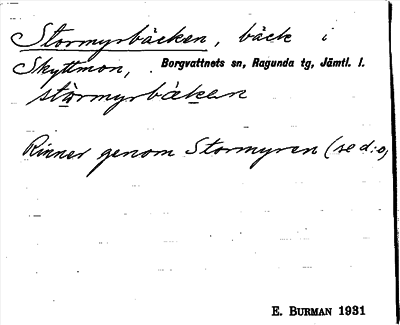 Stormyrbäcken, bäck i
Skyttmon, . Borgvattnets sn, Ragunda tg, Jämtl. l.
stormyrbäken
Rinner genom Stormyren (se d:o)
E. BURMAN 1931